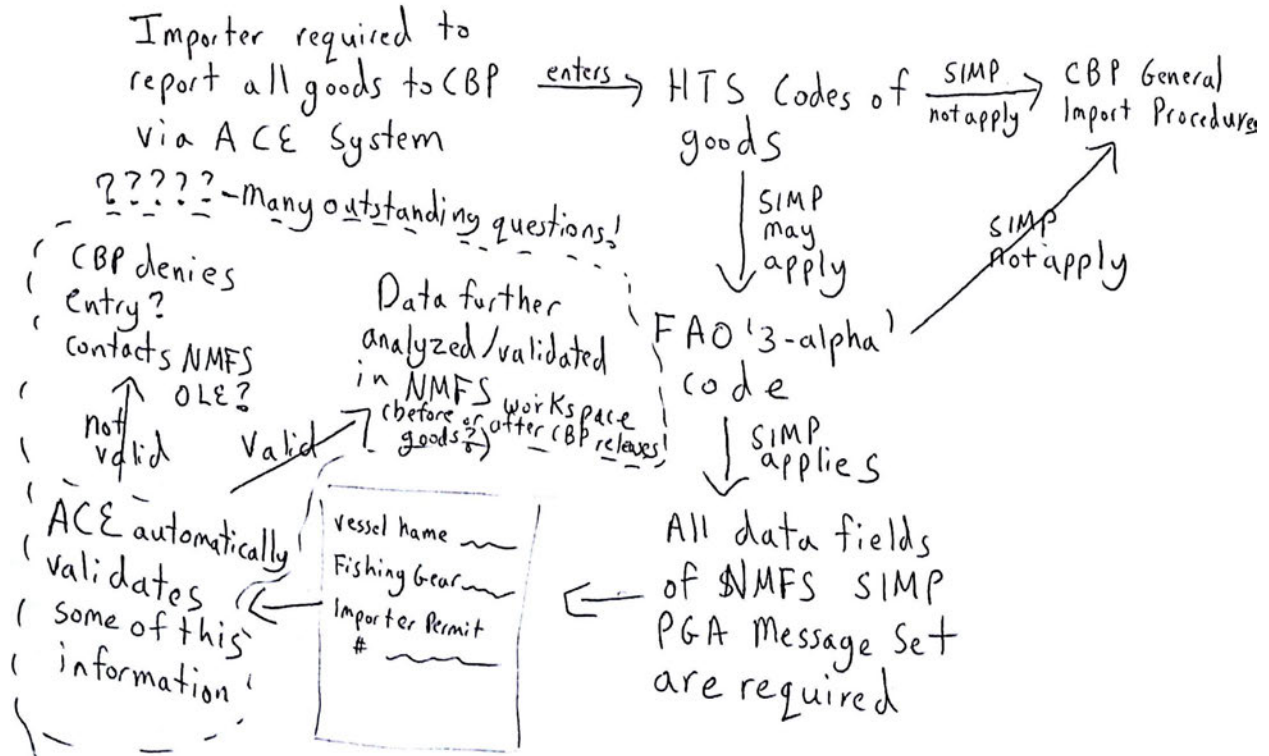 Importer required to
report all goods to CBP
via ACE System
enters
HTS Codes of
goods
SIMP
not apply
CBP General
Import Procedures
SIMP
may
apply
SIMP
not apply
FAO '3-alpha'
code
SIMP
applies
All data fields
of NMFS SIMP
PGA Message Set
are required
Vessel name
Fishing Gear
Importer Permit
#
ACE automatically
validates
some of this
information
not
valid
Valid
CBP denies
entry?
contacts NMFS
OLE?
Data further
analyzed/validated
in NMFS workspace
(before or after CBP releases
goods?)
?????-Many outstanding questions!